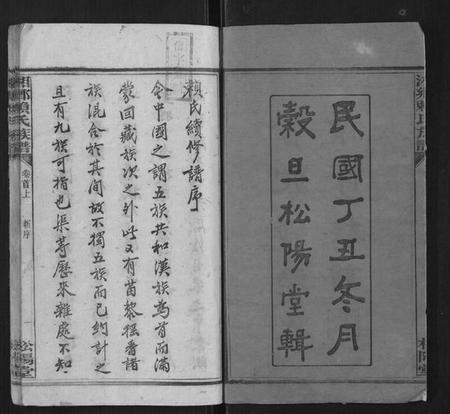 民國丁丑冬月
穀旦松陽堂輯
松陽堂
賴氏續修譜序
今中國之謂五族共和漢族為首而滿
蒙回藏族次之外此又有苗黎猺番諸
族混合於其間故不獨五族而已約計之
且有九族可指也渠等歷來雜處不知
賴氏族譜
卷首上
新序
松陽堂